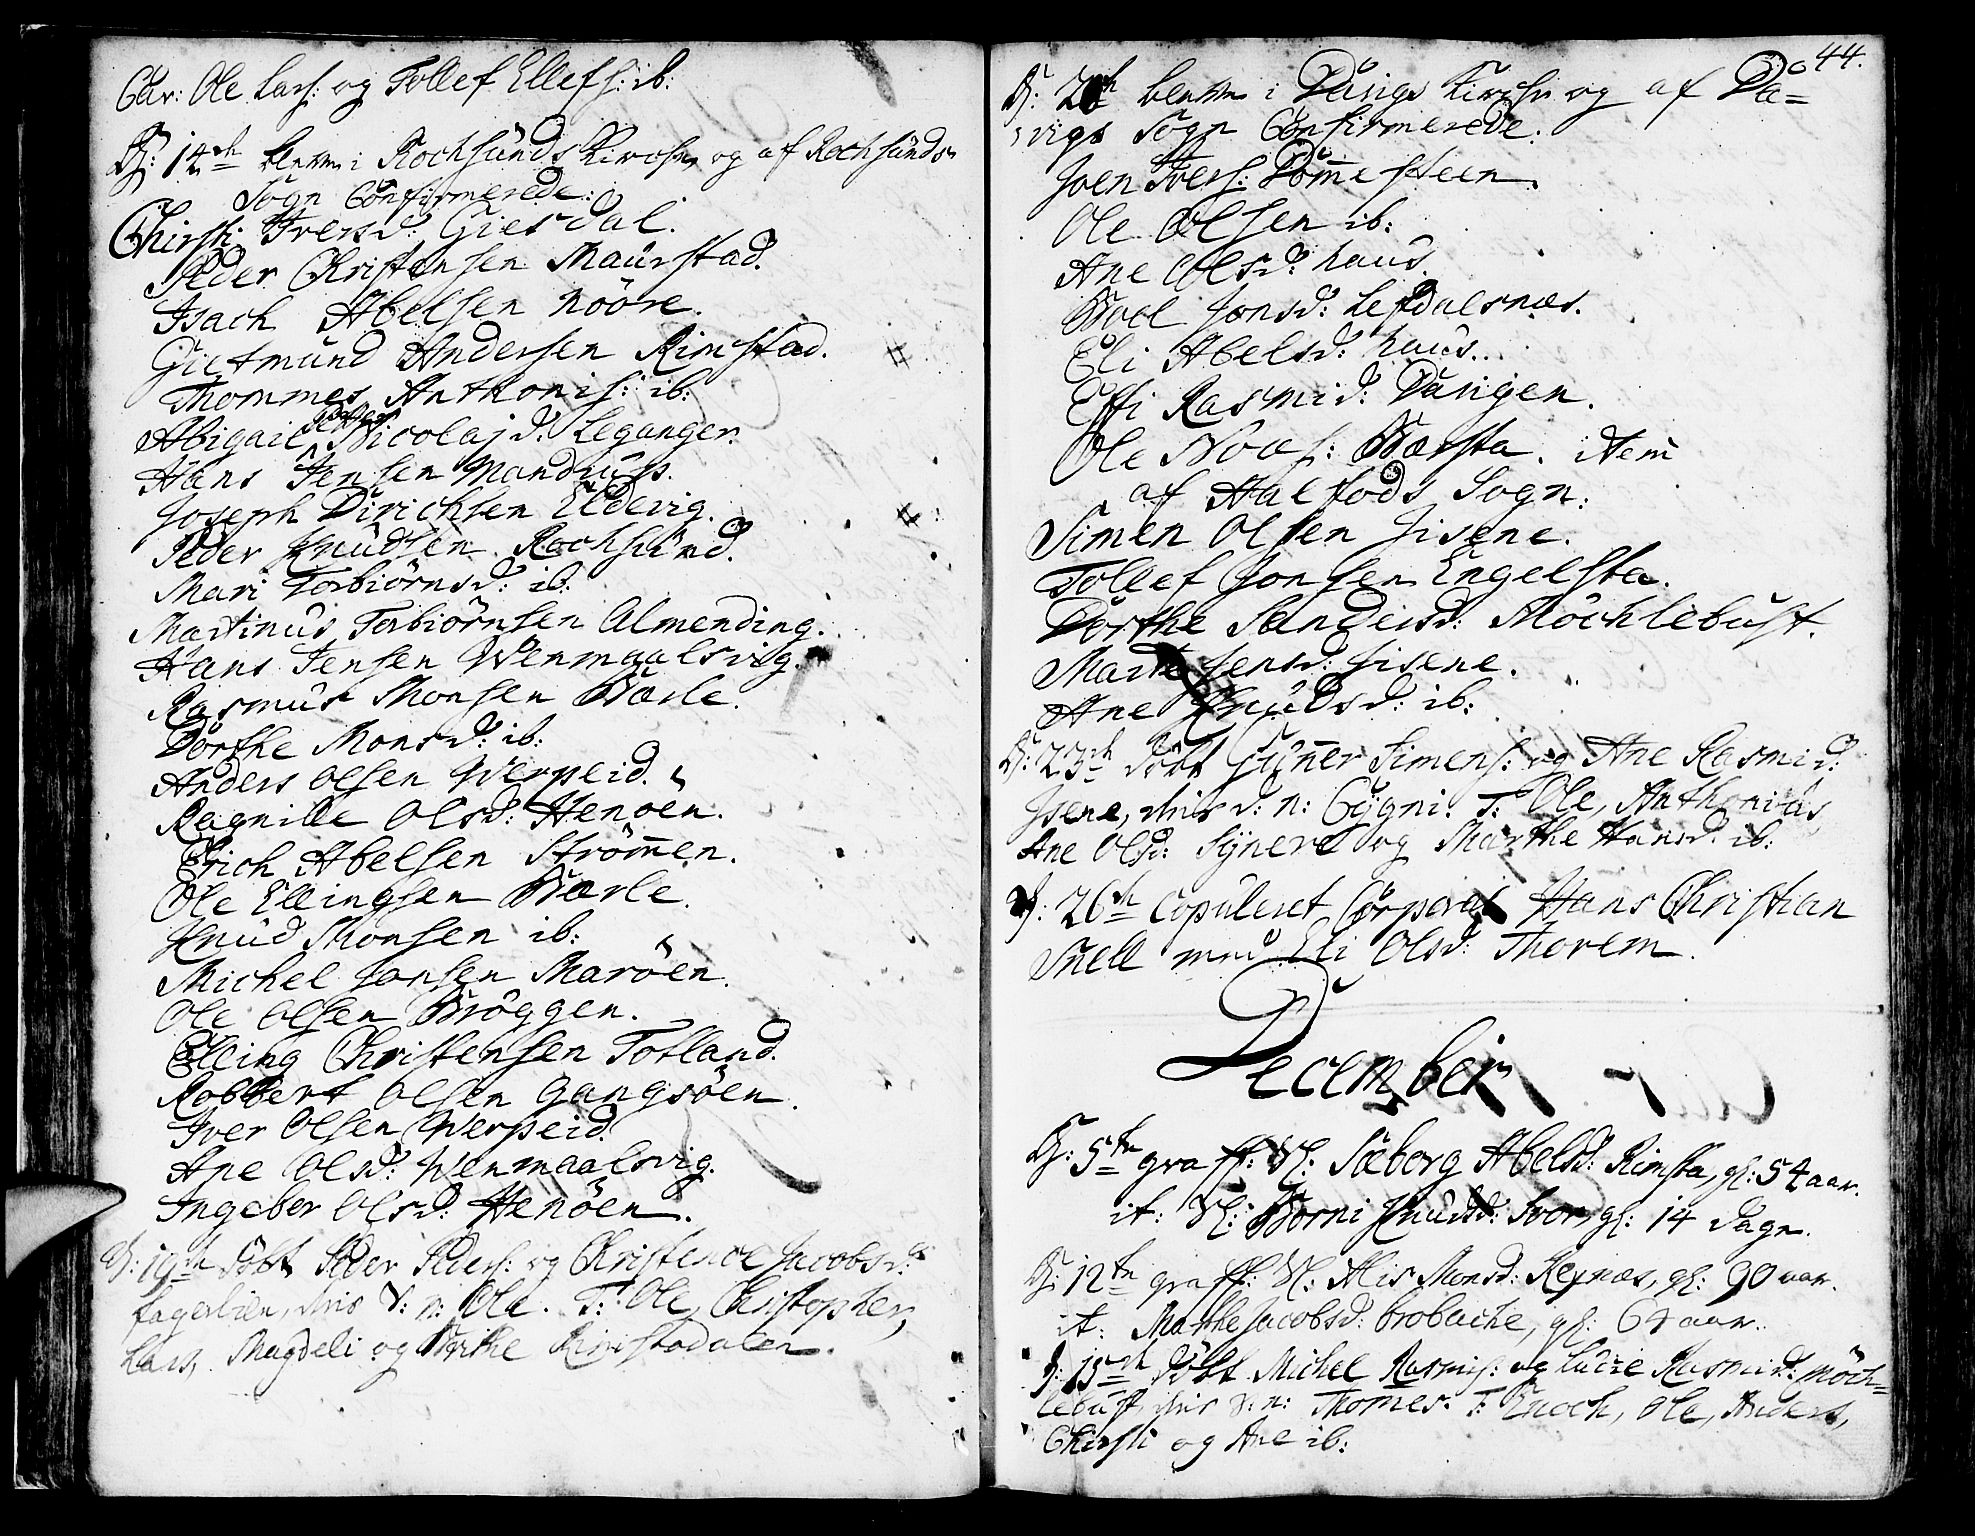 Cav: Ole Lars: og Tollef Ellefs: ib:
D: 14ch blewe i Rochsunds Kirche og af Rochsunds
Sogn Confirmerede:
Chirsti Iversd: Giesdal.
Peder Christensen Maurstad.
Isach Abelsen Nööre.
Gietmund Andersen Rimstad.
Thommes Anthonis: ib:
Abigail Nicolajd: Leganger.
Hans Jensen Mandrups.
Joseph Dirichsen Eldevig.
Peder Knudsen Rochsund.
Mari Torbiörnsd: ib:
Martinus Torbiörnsen Almending.
Hans Jensen Wenmaalsvig.
Rasmus Monsen Barle.
Dorthe Monsd: ib:
Anders Olsen Werpeid.
Ragnille Olsd: Henöen.
Erich Abelsen Strömen.
Ole Ellingsen Barle.
Knud Monsen ib:
Michel Jansen Maröen.
Ole Olsen Bröggen.
Elling Christensen Totland.
Robbert Olsen Gangsöen.
Iver Olsen Werpeid.
Ane Olsd: Wenmaalsvig.
Ingeber Olsd: Henöen.
D: 19ch döbt Peder Peders: og Christence Jacobsd:
Fagerlien, dris S: n: Ole. T: Ole, Christopher,
Lars, Magdeli og Birthe Rimstadalen.
44.
D: 21ch blewe i Davigs Kirche og af Da=
vigs Sogn Confirmerede:
Joen Ivers: Dommesteen.
Ole Olsen ib:
Ane Olsd: Haus.
Boel Jonsd: Lefdalsnæs.
Eli Abelsd: Haus.
Effi Rasmid: Davigen.
Ole Noas: Barsta. item
af Aalfods Sogn:
Simen Olsen Jisene.
Tollef Jonsen Engelsta.
Dorthe Sandersd: Möchlebust.
Marte Jensd: Jisene.
Ane Knudsd: ib:
D: 23ch döbt Gunner Simens: og Ane Rasmid:
Isene, dris d: n: Gygni. T: Ole, Anthonius,
Ane Olsd: Synere og Marthe Hansd. ib:
D: 26ch Copuleret Corporal Hans Christian
Snell med Eli Olsd: Thorem.
December
D: 5te graff: Sl: Seborg Abelsd: Rimsta, gl: 54 aar.
it: Sl: Borni Knudsd: Svor, gl: 14 dage.
D: 12te graff: Sl: Alis Monsd: Reynæs, gl: 90 aar.
it: Marthe Jacobsd: Brobacke, gl: 67 aar.
D: 15ch döbt Michel Rasmis: og Lucie Rasmid: Möch=
lebust, dris S: n: Thomes. T: Enoch, Ole, Anders,
Chirsti og Ane ib: